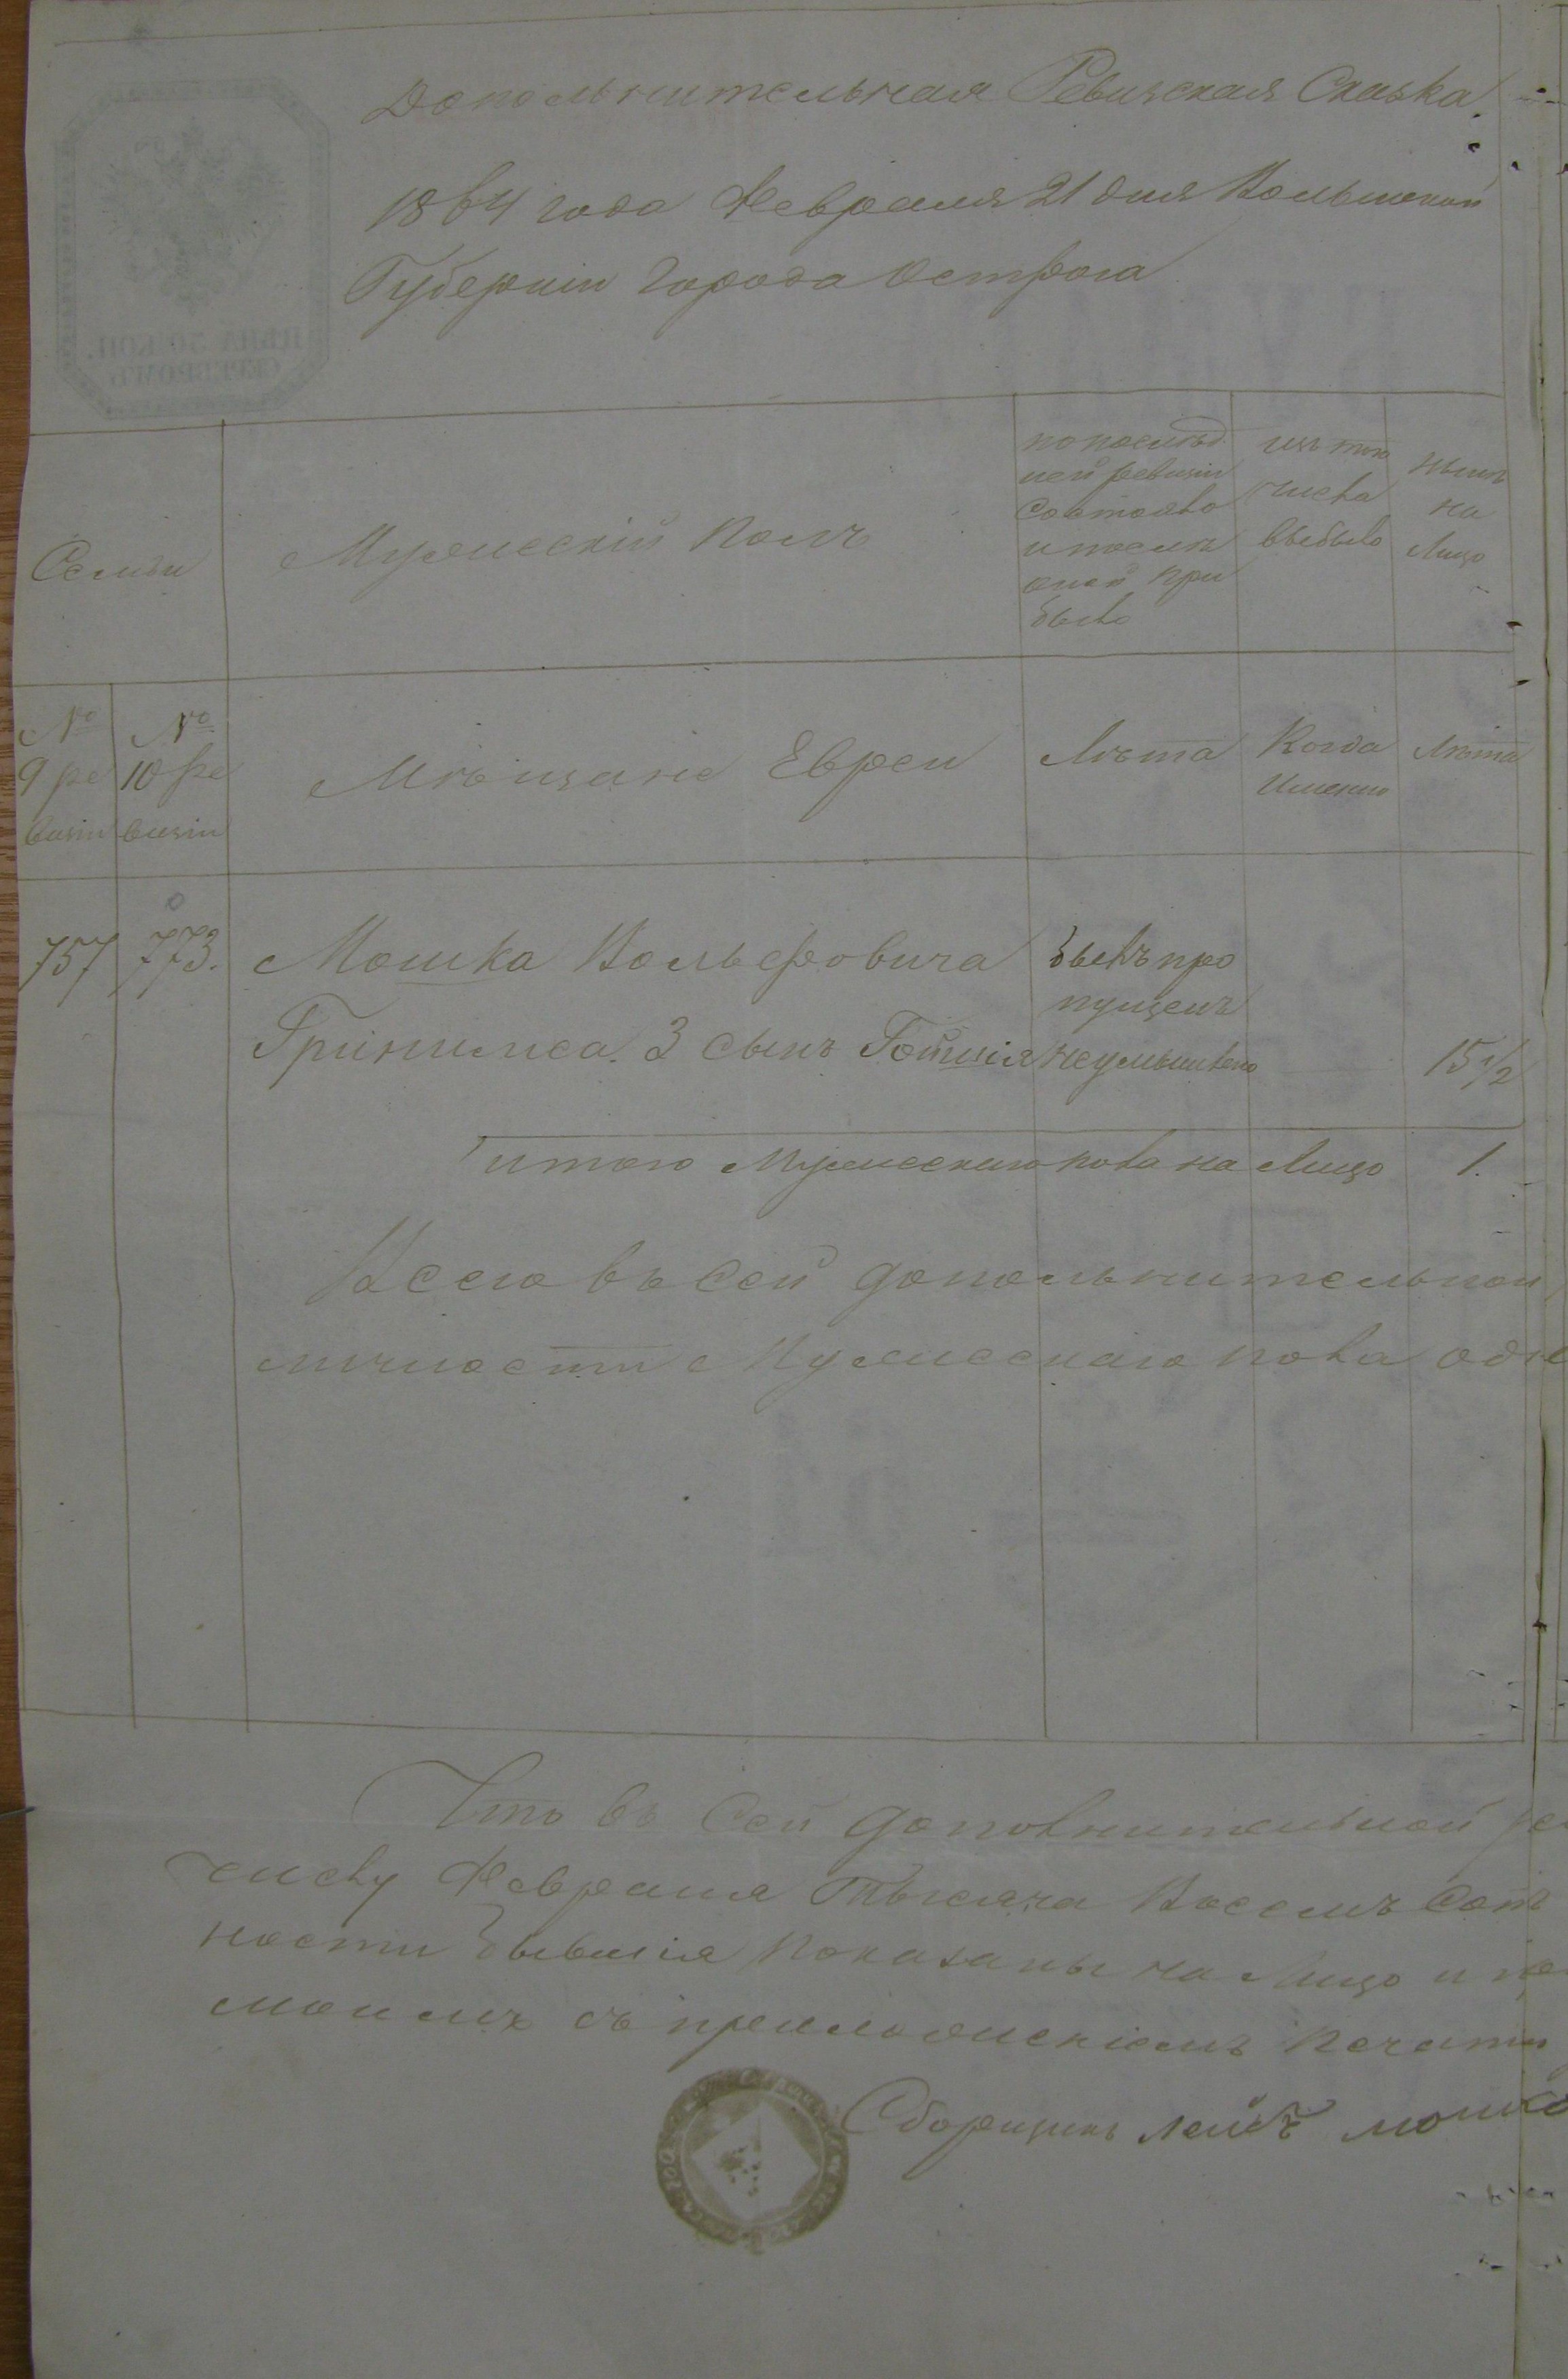 Дополнительная Ревизская Сказка.
1864 года Февраля 21 дня Волынской
Губерніи Города Острога
ЦѢНА 30 КОП.
СЕРЕБРОМЪ
Семьи
Мужескій Полъ
по послѣд
ней ревизіи
состояло
и послѣ
оной при
было
изъ того
числа
выбыло
нынѣ
на
Лицо
№
9 ре
визіи
№
10 ре
визіи
Мѣщане Евреи
Лѣта
Когда
Именно
Лѣта
757
773.
Мошка Вольфовича
Гринимса. 3 сынъ
былъ про
пущенъ
неумышлено
15 1/2
итого Мужескаго пола на Лицо 1.
Всего въ сей дополнительной
личности Мужескаго пола одн
Что въ сей дополнительной ре
числу Февраля Тысяча Восемъ Сотъ
ности бывшія показаны на Лицо и
моимъ съ приложеніемъ Печати
Сборщикъ Лейбъ Мошко